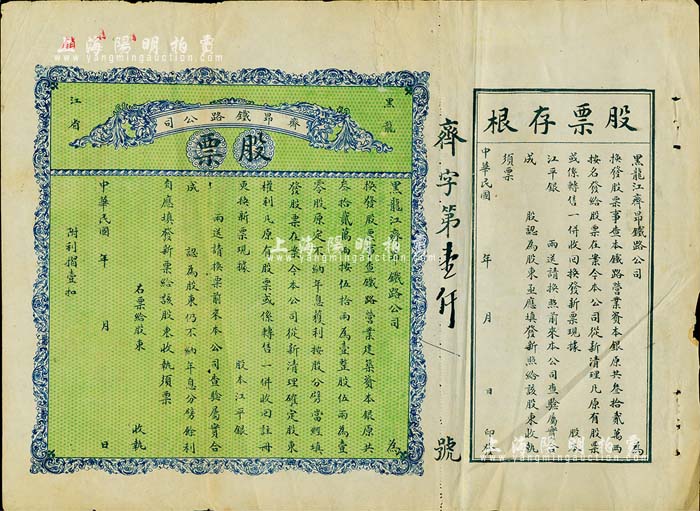 股票存根
黑龍江齊昂鐵路公司 為
換發股票事查本鐵路營業資本銀原共叁拾貳萬兩
按名發給股票在案今本公司從新清理凡原有股票
或係轉售一併收回換發新票現據 股
江平銀 兩送請換照前來本公司查驗屬實合
成 股認為股東亟應填發新照給該股東收執
須票
中華民國 年 月 日 印
齊字第壹仟 號
黑龍
江省
齊昂鐵路公司
股票
黑龍江齊 鐵路公司 為
換發股票 查鐵路營業建築資本銀原共
叁拾貳萬兩按伍拾兩為壹整股伍兩為壹
零股原定不納年息獲利按股分劈當經填
發股票在案今本公司從新清理確定股東
權利凡原有股票或係轉售一併收回註冊
更換新票現據 股本江平銀
兩送請換票前來本公司查驗屬實合
成 認為股東仍不納年息分劈餘利
自應填發新票給該股東收執須票
右票給股東 收執
中華民國 年 月 日
附利摺壹扣
上海陽明拍賣
www.yangmingauction.com